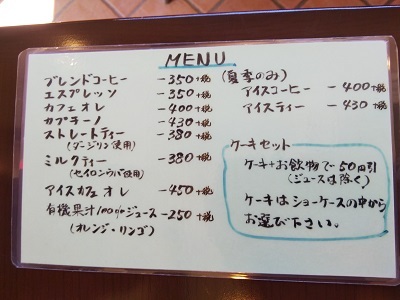 MENU
ブレンドコーヒー -350+税
エスプレッソ -350+税
カフェオレ -400+税
カプチーノ -430+税
ストレートティー -380+税
(ダージリン使用)
ミルクティー -380+税
(セイロンウバ使用)
アイスカフェオレ -450+税
有機果汁100%ジュース -250+税
(オレンジ・リンゴ)
(夏季のみ)
アイスコーヒー -400+税
アイスティー -430+税
ケーキセット
ケーキ+お飲物で50円引
(ジュースは除く)
ケーキはショーケースの中から
お選び下さい。